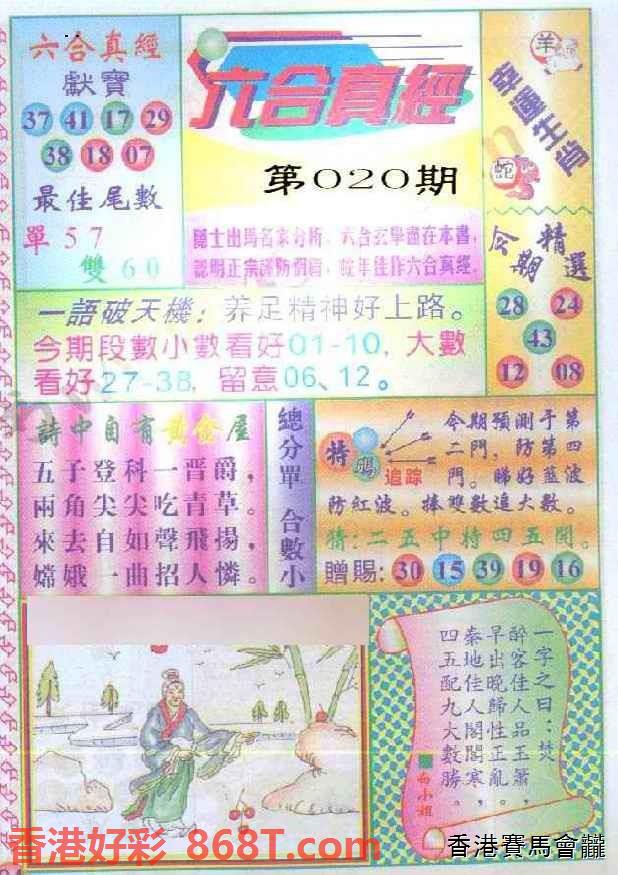 六合真經
獻寶
37 41 17 29
38 18 07
最佳尾數
單57
雙60
六合真經
第020期
說明正宗謹防假冒，蛇年佳作六合真經。
羊
幸運生肖
蛇
今期精選
28 24
43
12 08
一語破天機：养足精神好上路。
今期段數小數看好01-10，大數
看好27-38，留意06、12。
詩中自有黃金屋
五子登科一晋爵，
兩角尖尖吃青草。
來去自如聲飛揚，
嫦娥一曲招人憐。
總分單
合數小
特碼
追踪
今期預測于第
二門，防第四
門。睇好藍波
防紅波。捧雙數追大數。
猜：二五中特四五開。
贈賜：30 15 39 19 16
一字之曰：焚
醉客佳人品玉簫，
早出晚歸性正亂。
秦地佳人閣閣寒，
四五配九大數勝。
白小姐
香港好彩 868T.com
香港賽馬會